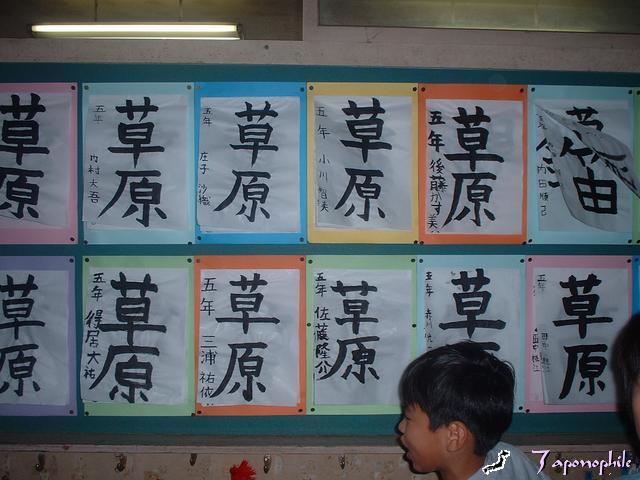 草原
草原
五年
内村大吾
草原
五年
庄子 沙織
草原
五年
小川
草原
五年 後藤かす美
草
草原
草原
五年 得居大祐
草原
五年 三浦 祐依
草原
五年 佐藤隆介
草
五年
草原
五年
Japonophile